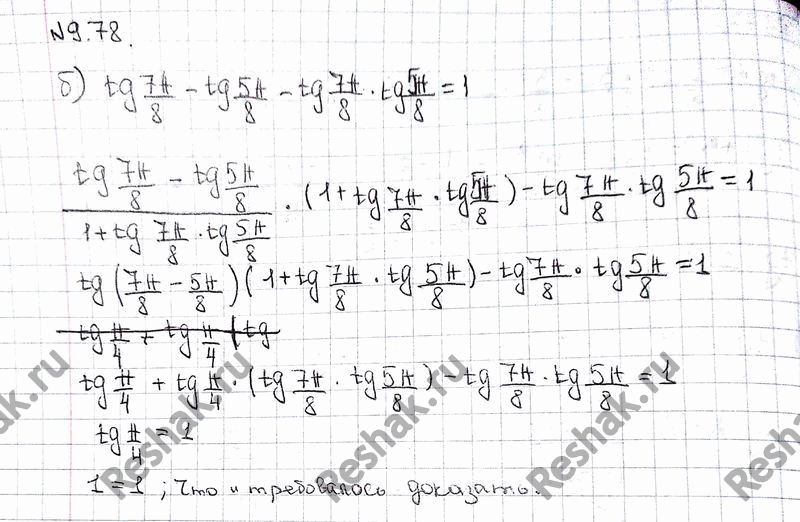 №9.78.
б) tg 7π/8 - tg 5π/8 - tg 7π/8 · tg 5π/8 = 1
(tg 7π/8 - tg 5π/8)/(1 + tg 7π/8 · tg 5π/8) · (1 + tg 7π/8 · tg 5π/8) - tg 7π/8 · tg 5π/8 = 1
tg(7π/8 - 5π/8)(1 + tg 7π/8 · tg 5π/8) - tg 7π/8 · tg 5π/8 = 1
tg π/4 + tg π/4 (tg
tg π/4 + tg π/4 · (tg 7π/8 · tg 5π/8) - tg 7π/8 · tg 5π/8 = 1
tg π/4 = 1
1 = 1 ; Что и требовалось доказать.
Reshak.ru
Reshak.ru
Reshak.ru
Reshak.ru